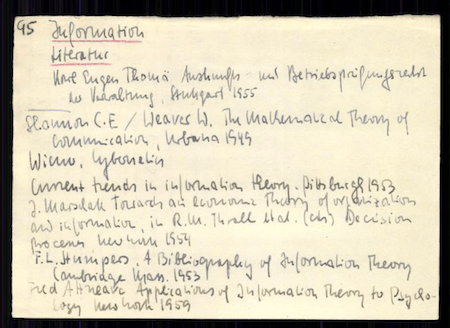 95 Information
Literatur
Karl Eugen Thomä Auskunfts- und Betriebsprüfungsrecht
der Verwaltung, Stuttgart 1955
Shannon C.E / Weaver W. The Mathematical Theory of
Communication, Urbana 1949
Wiener, Cybernetics
Current trends in information theory. Pittsburgh 1953
J. Marschak Towards an economic theory of organization
and information, in R.M. Thrall et al. (eds) Decision
processes New York 1954
F.L. Stumpers, A Bibliography of Information Theory
Cambridge Mass. 1953
Fred Attneave Applications of Information Theory to Psycho-
logy New York 1959